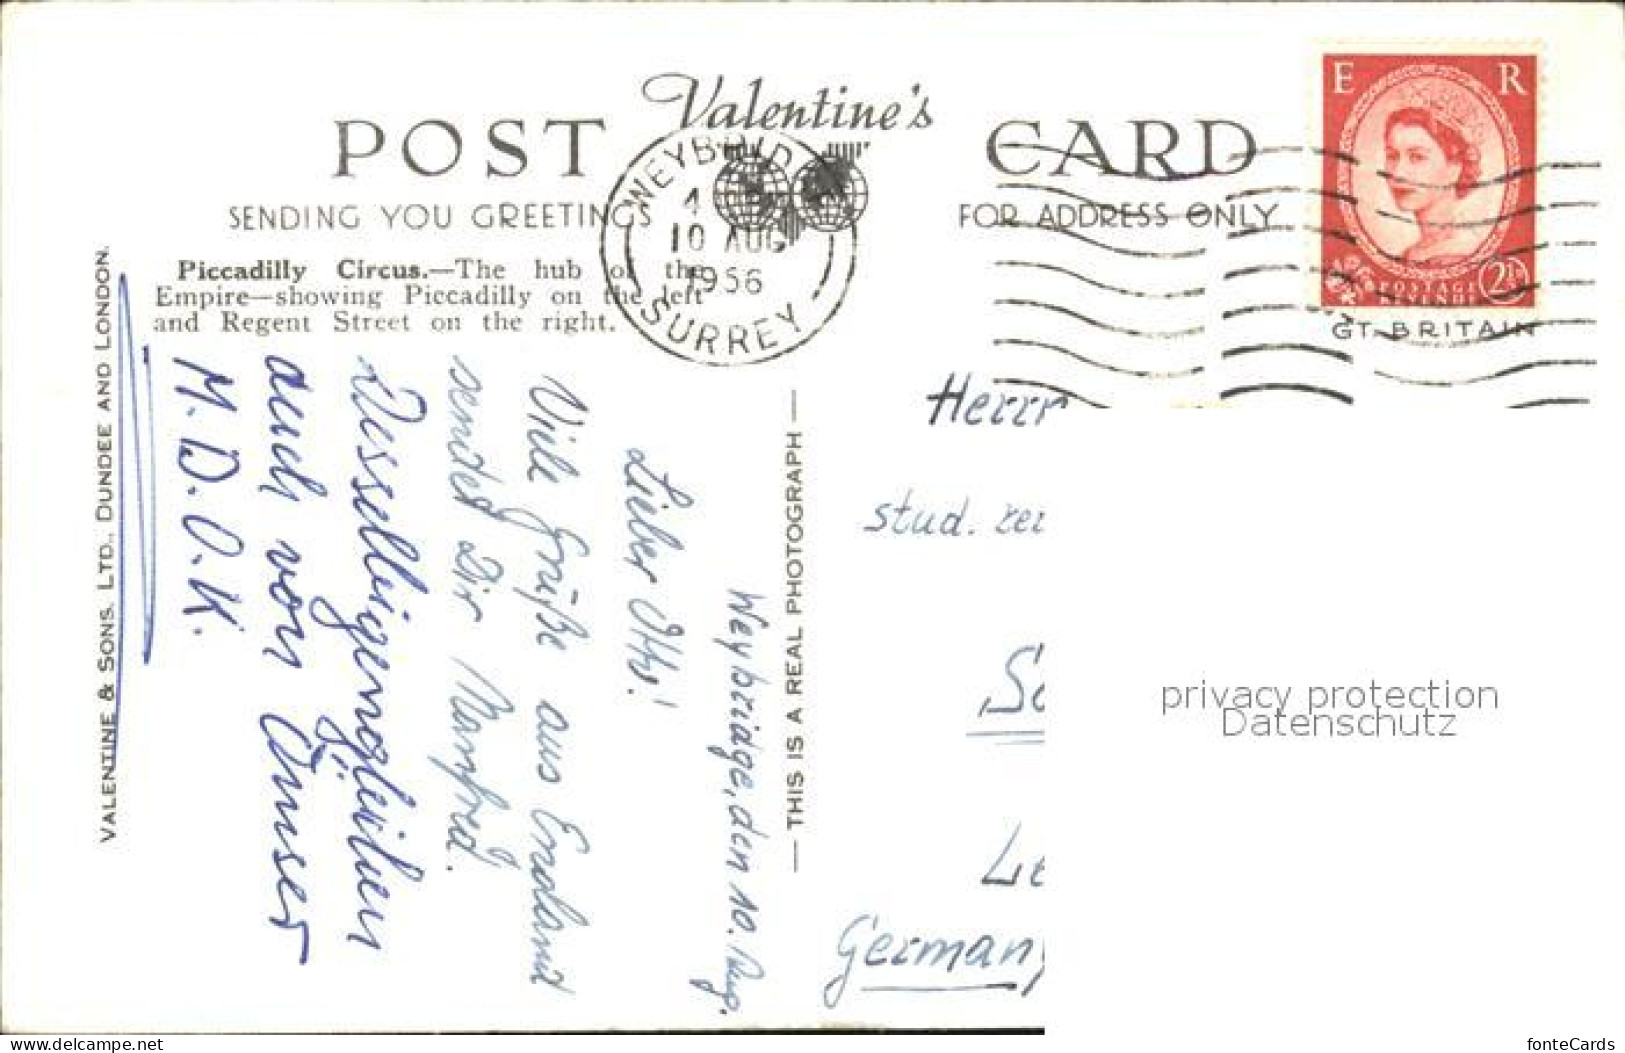 Valentine's
POST CARD
SENDING YOU GREETINGS
FOR ADDRESS ONLY
Piccadilly Circus.—The hub of the
Empire—showing Piccadilly on the left
and Regent Street on the right.
WEYBRIDGE
10 AUG
1956
SURREY
E R
POSTAGE
REVENUE
2½
GT. BRITAIN
VALENTINE & SONS. LTD., DUNDEE AND LONDON.
— THIS IS A REAL PHOTOGRAPH —
Weybridge, den 10. Aug.
Lieber Otto!
Viele Grüße aus England
sendet Dir Manfred.
Desselbigengleichen
auch von
M. D. O. K.
Herrn
stud.
Germany
privacy protection
Datenschutz
www.delcampe.net
fonteCards